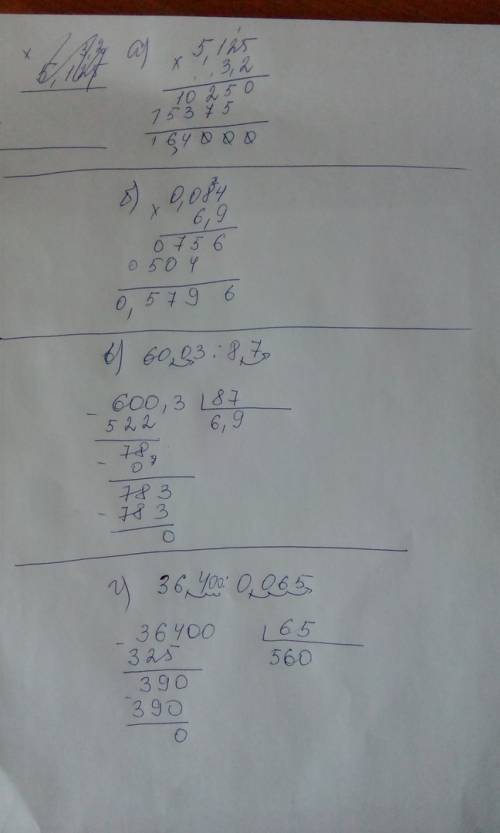 а) 5,125
× 3,2
10 250
15375
16,4000
б) 0,084
× 6,9
0756
0504
0,5796
в) 60,03 : 8,7
- 600,3 | 87
522 6,9
78,
- 0
783
- 783
0
г) 36,400 : 0,065
- 36400 | 65
325 560
390
- 390
0